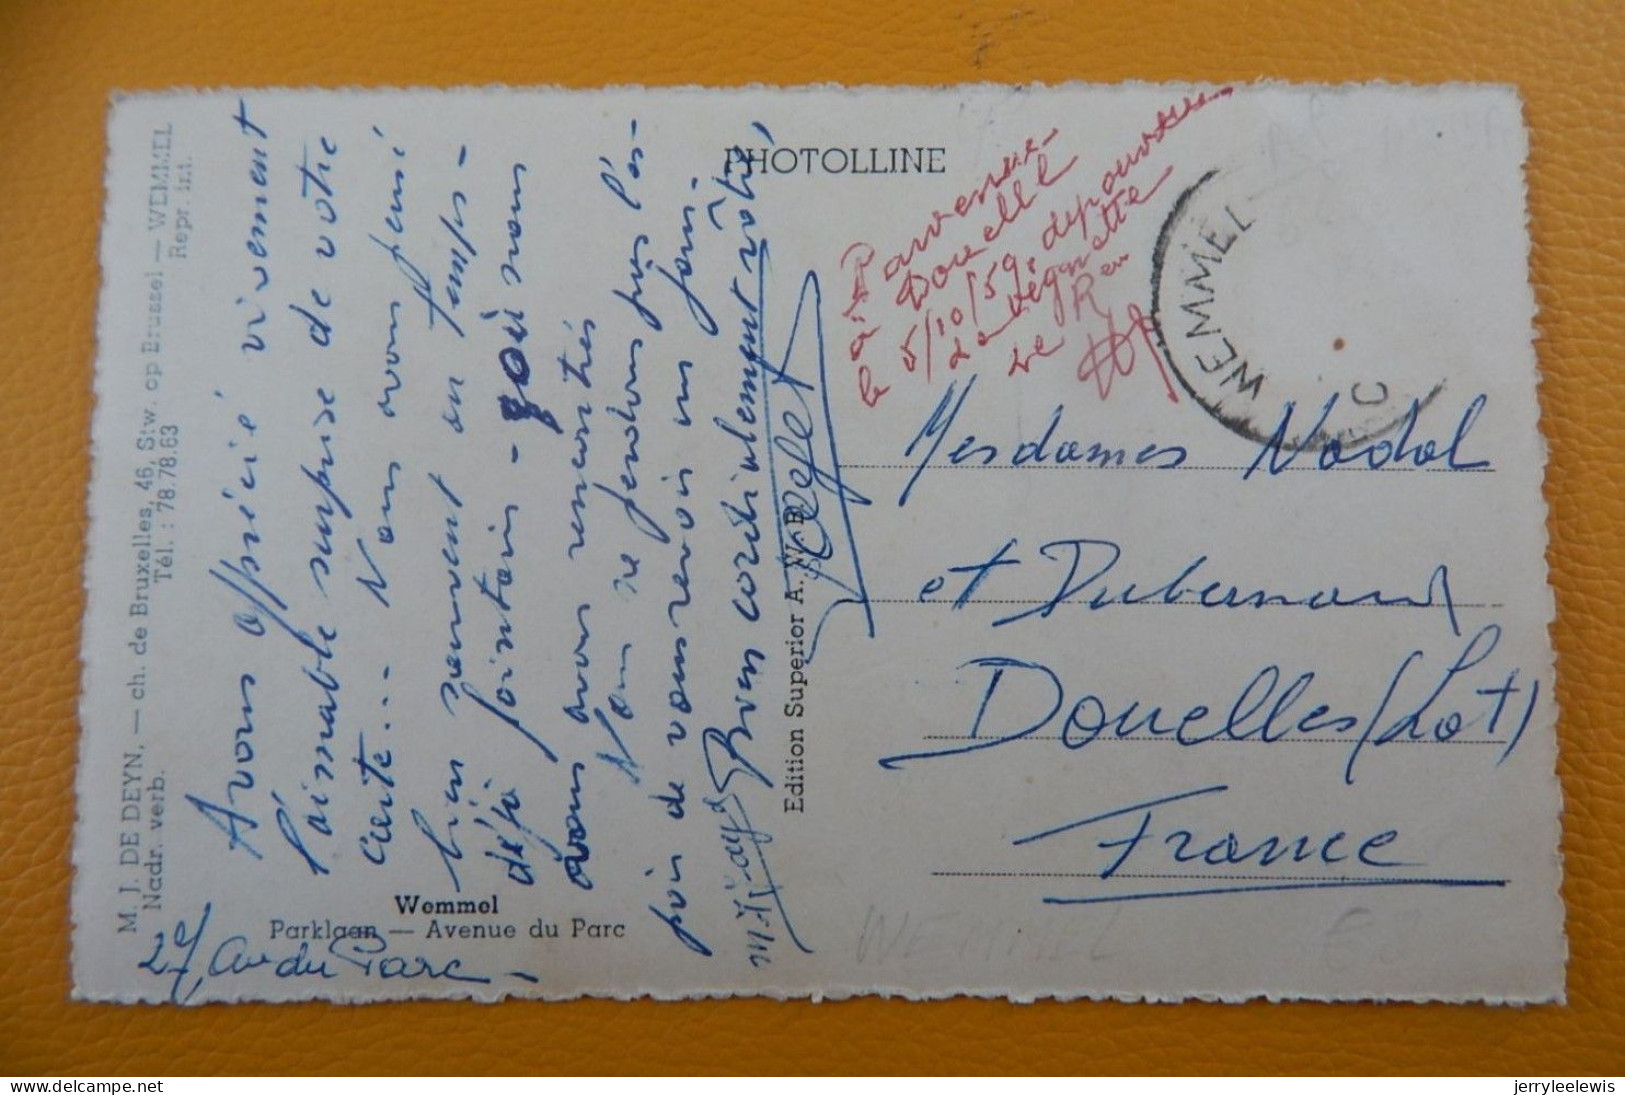 M. J. DE DEYN, — ch. de Bruxelles, 46, Stw. op Brussel — WEMMEL
Nadr. verb. Tél. : 78.78.63 Repr. int.
Avons apprécié vivement
l'aimable surprise de votre
carte... Nous avons pensé
bien souvent au temps -
déjà lointain - où nous
avons avons rencontrés
Nous ne perdons pas l'es-
poir de vous revoir un jour.
Bien cordialement vôtre,
Wemmel
Parklaan — Avenue du Parc
27, Av. du Parc -
Edition Superior A. W. B.
PHOTOLLINE
Parvenue
à Douelle
le 5/10/59, dépourvue
de vignette
de
WEMMEL
C
Mesdames Nadal
et Dubernard
Douelles (Lot)
France
WEMMEL
jerryleelewis